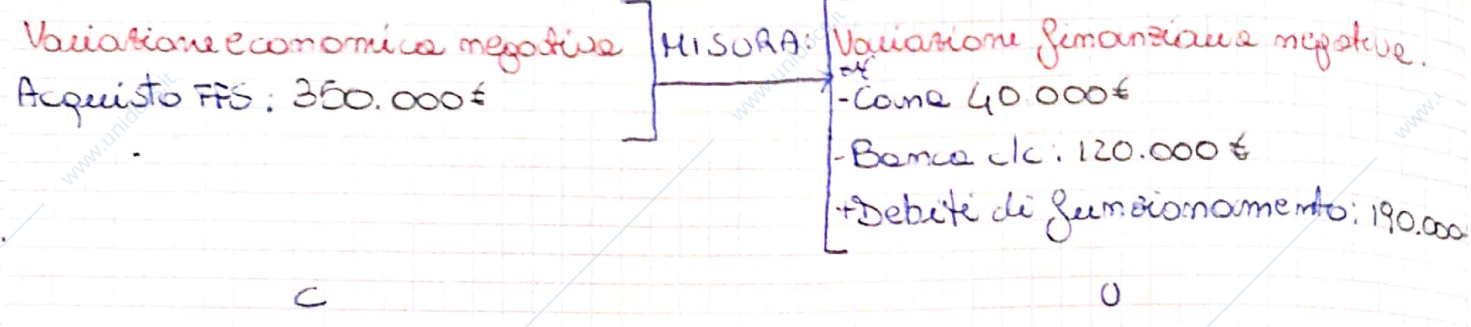 Variazione economica negativa
Acquisto FFS: 350.000€
MISURA:
Variazione finanziaria negativa.
-Cassa 40.000€
-Banca c/c: 120.000€
+Debiti di funzionamento: 190.000
C
U
www.unidoc.it
www.unidoc.it